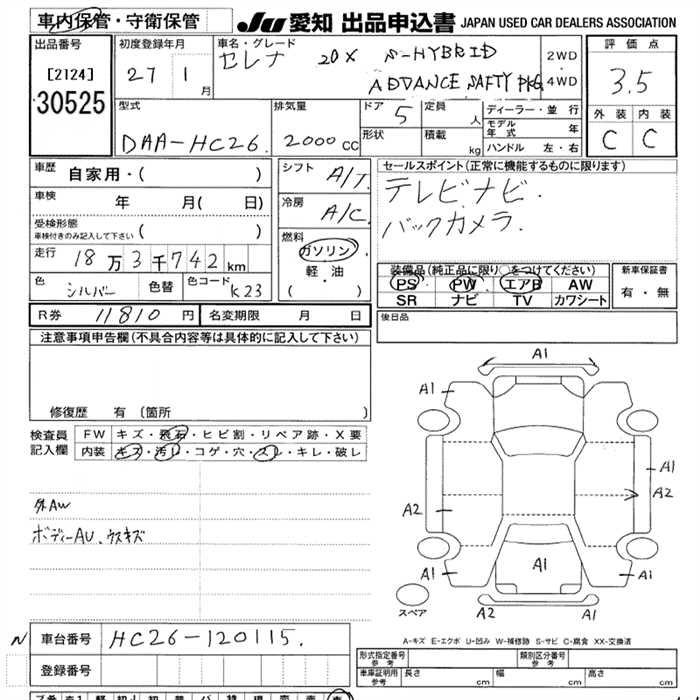 車内保管・守衛保管
JU 愛知 出品申込書 JAPAN USED CAR DEALERS ASSOCIATION
出品番号
[2124]
30525
初度登録年月
27 1 月
車名・グレード
セレナ 20X S-HYBRID
ADVANCE SAFTY PKG.
2WD
4WD
評価点
3.5
外装 内装
C C
型式
DAA-HC26.
排気量
2000 cc
ドア 5
形状
定員 人
積載 kg
ディーラー・並行
モデル年式 年
ハンドル 左・右
車歴
自家用・( )
車検
年 月( 日)
受検形態
車検付きのみ記入して下さい ( )
走行
18万3千742km
色 シルバー 色替 色コード K23
シフト A/T
冷房 A/C
燃料
ガソリン
軽・油
( )
セールスポイント(正常に機能するものに限ります)
テレビ・ナビ・
バックカメラ.
装備品(純正品に限り○をつけてください)
PS PW エアB AW
SR ナビ TV カワシート
新車保証書
有・無
R券 11810 円 名変期限 月 日
後日品
注意事項申告欄(不具合内容等は具体的に記入して下さい)
修復歴 有 〔箇所 〕
検査員
記入欄
FW キズ・飛石・ヒビ割・リペア跡・X要
内装 キズ・汚し・コゲ・穴・スレ・キレ・破レ
外AW
ボディーAU、ウスキズ
A1
A1 A1
A1
A2 A2
A1
A1 A1
スペア
A2 A1
A-キズ E-エクボ U-凹み W-補修跡 S-サビ C-腐食 XX-交換済
N 車台番号 HC26-120115.
登録番号
形式指定番号
参考
類別区分番号
参考
車庫証明用
参考
長さ cm 幅 cm 高さ cm